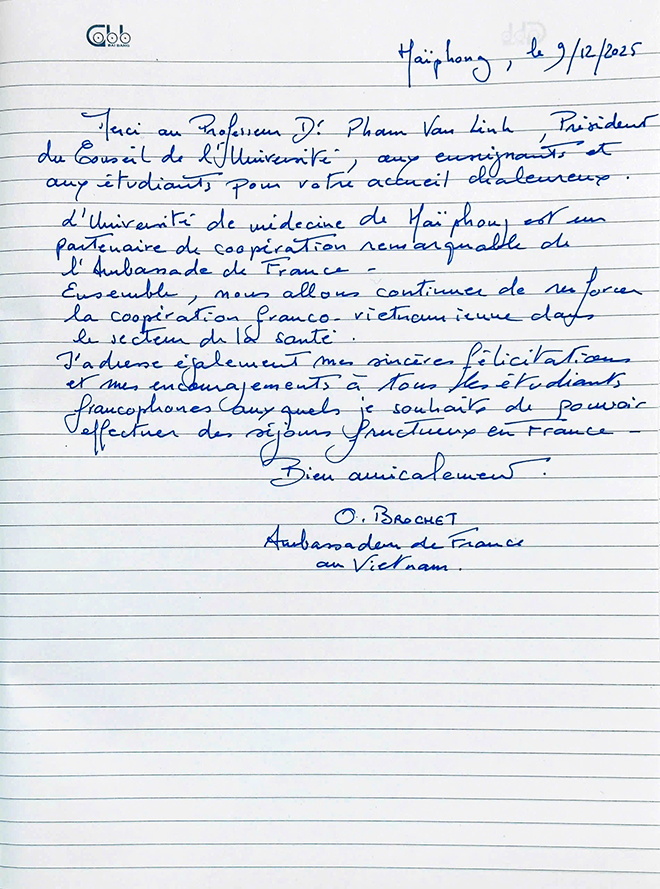 Cabb
HẢI GIANG
Haïphong, le 9/12/2025
Merci au Professeur Dr Pham Van Linh, Président
du Conseil de l'Université, aux enseignants et
aux étudiants pour votre accueil chaleureux.
L'Université de médecine de Haïphong est un
partenaire de coopération remarquable de
l'Ambassade de France -
Ensemble, nous allons continuer de renforcer
la coopération franco-vietnamienne dans
le secteur de la santé.
J'adresse également mes sincères félicitations
et mes encouragements à tous les étudiants
francophones auxquels je souhaite de pouvoir
effectuer des séjours fructueux en France -
Bien amicalement.
O. BROCHET
Ambassadeur de France
au Vietnam.